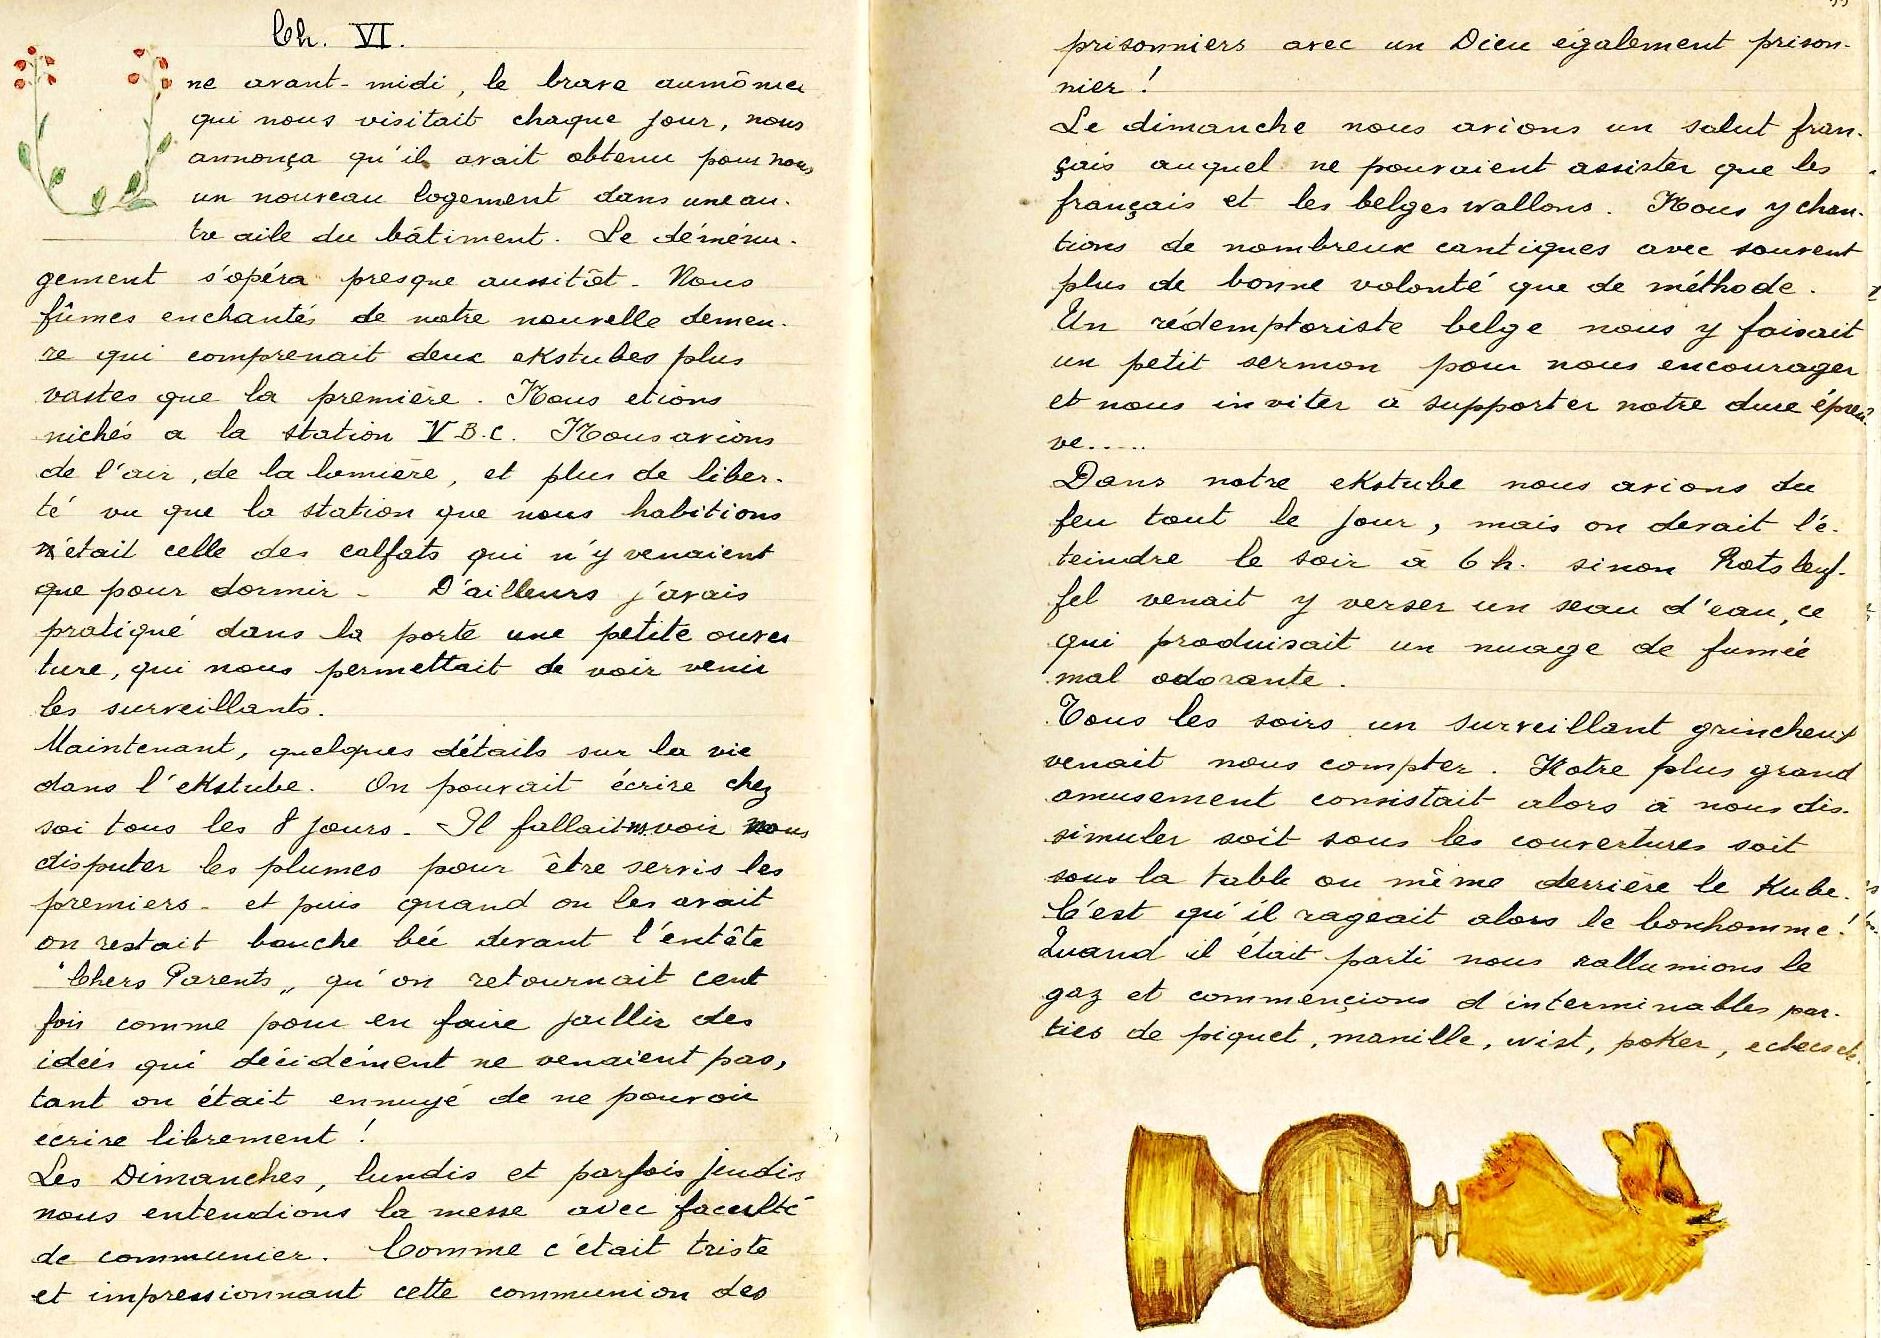 Ch. VI.
Une avant-midi, le brave aumônier
qui nous visitait chaque jour, nous
annonça qu'il avait obtenu pour nous
un nouveau logement dans une au-
tre aile du bâtiment. Le déména-
gement s'opéra presque aussitôt - Nous
fûmes enchantés de notre nouvelle demeu-
re qui comprenait deux ekstubes plus
vastes que la première. Nous étions
nichés a la station V B.C. Nous avions
de l'air, de la lumière, et plus de liber-
té vu que la station que nous habitions
était celle des calfats qui n'y venaient
que pour dormir - D'ailleurs j'avais
pratiqué dans la porte une petite ouver
ture, qui nous permettait de voir venir
les surveillants.
Maintenant, quelques détails sur la vie
dans l'ekstube. On pouvait écrire chez
soi tous les 8 jours - Il fallait voir nous
disputer les plumes pour être servis les
premiers - et puis quand on les avait
on restait bouche bée devant l'entête
"Chers Parents„ qu'on retournait cent
fois comme pour en faire jaillir des
idées qui décidément ne venaient pas,
tant on était ennuyé de ne pouvoir
écrire librement !
Les Dimanches, lundis et parfois jeudis
nous entendions la messe avec faculté
de communier. Comme c'était triste
et impressionnant cette communion des
prisonniers avec un Dieu également prison-
nier !
Le dimanche nous avions un salut fran-
çais auquel ne pouvaient assister que les
français et les belges wallons. Nous y chan-
tions de nombreux cantiques avec souvent
plus de bonne volonté que de méthode.
Un rédemptoriste belge nous y faisait
un petit sermon pour nous encourager
et nous inviter à supporter notre dure épreu-
ve.....
Dans notre ekstube nous avions du
feu tout le jour, mais on devait l'é-
teindre le soir à 6 h. sinon Rotsleuf-
fel venait y verser un seau d'eau, ce
qui produisait un nuage de fumée
mal odorante.
Tous les soirs un surveillant grincheux
venait nous compter. Notre plus grand
amusement consistait alors à nous dis-
simuler soit sous les couvertures soit
sous la table ou même derrière le Kube.
C'est qu'il rageait alors le bonhomme !
Quand il était parti nous rallumions le
gaz et commençions d'interminables par-
ties de piquet, manille, wist, poker, echecs etc.